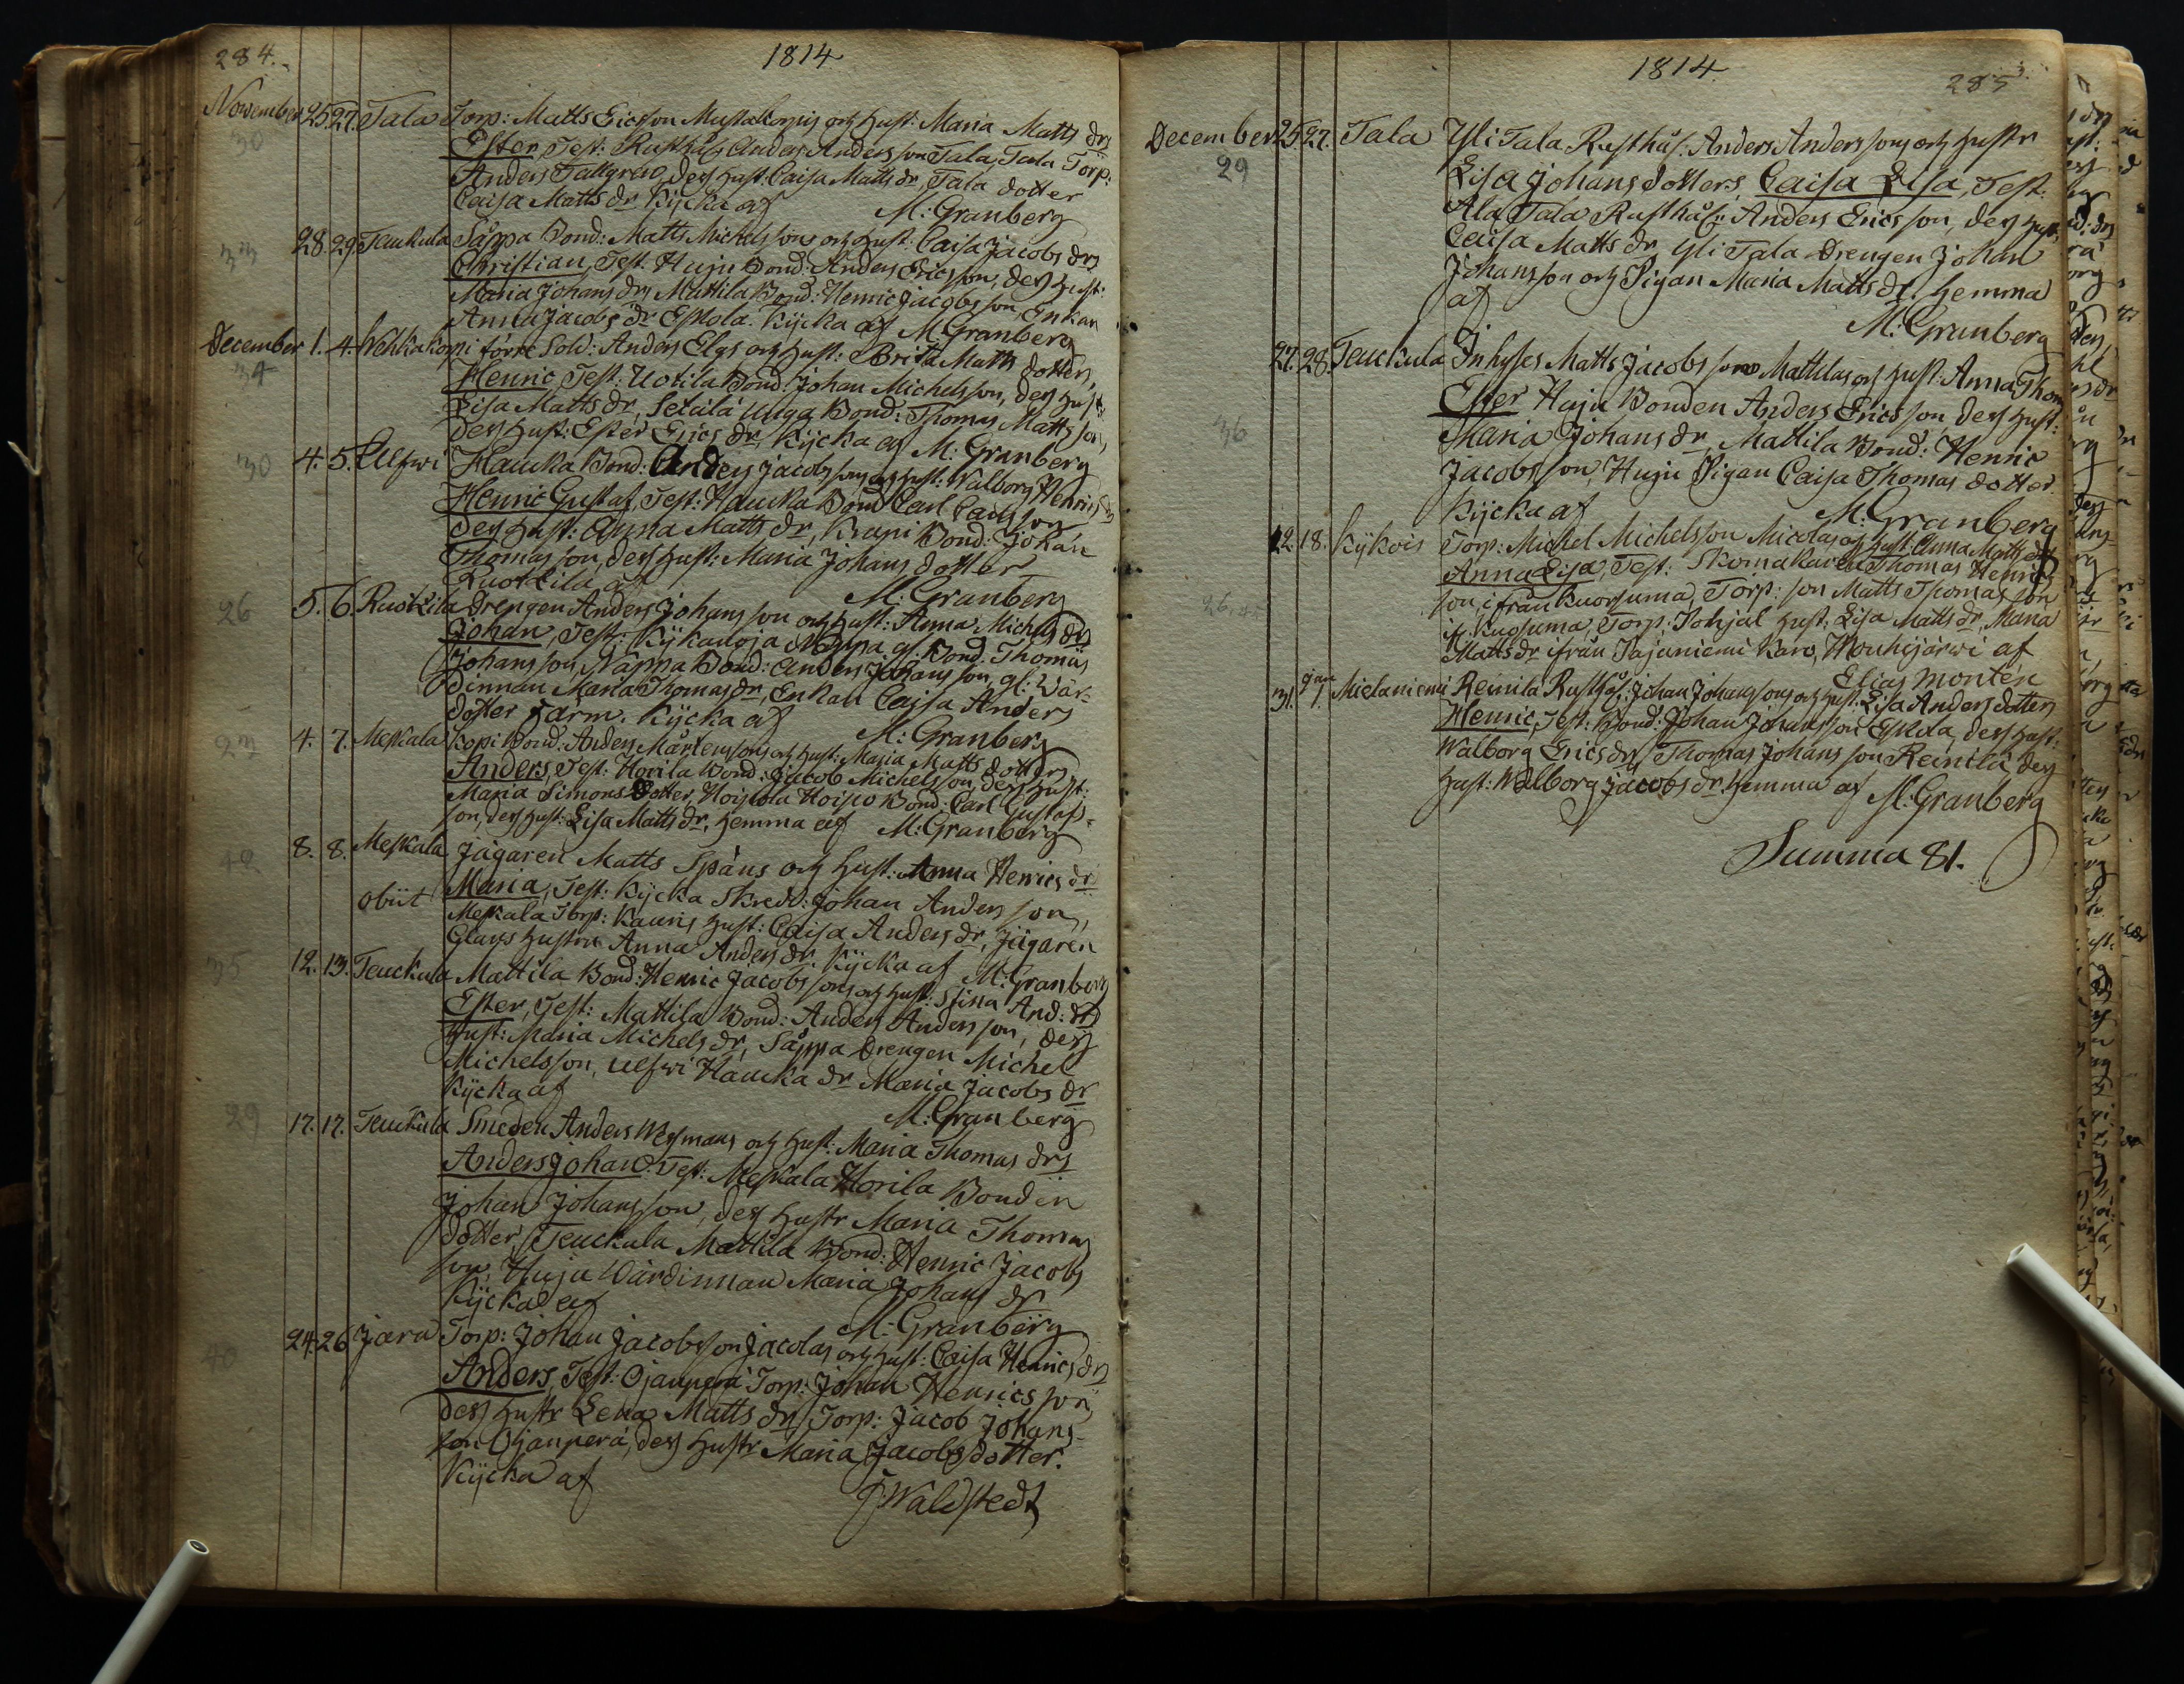 284.
1814
November 25. 27. Tala Torp: Matts Ericsson Mustakorpis och Hust: Maria Matts drs
30 Ester, Test: Rusthåls Anders Andersson Tala, Tala Torp:
Anders Tallgren, dess Hust: Caisa Matts dr, Tala dotter
Caisa Matts dr Kÿcka af M: Granberg
33 28. 29. Teuckula Såppa Bond: Matts Michelssons och Hust: Caisa Jacobs drs
Christian, Test: Huju Bond: Anders Ericsson, dess Hust:
Maria Johans dr, Mattila Bond: Henric Jacobsson, Enkan
Anna Jacobs dr Eskola. Kÿcka af M: Granberg
December 1. 4. Wehkakorpi förre Sold: Anders Elgs och Hust: Brita Matts dotters
34 Henric, Test: Uotila Bond: Johan Michelsson, dess Hust:
Lisa Matts dr, Setälä Unga Bond: Thomas Mattsson,
dess Hust: Ester Erics dr, Kÿcka af M: Granberg
30 4. 5. Ulfwi Haucka Bond: Anders Jacobssons och Hust: Walborg Henrics drs
Henric Gustaf, Test: Haucka Bond Carl Carlsson
dess Hust: Anna Matts dr, Krapi Bond: Johan
Thomasson, dess Hust: Maria Johans dotter
Ruokila af M: Granberg
26 5. 6. Ruokila Drengen Anders Johansson och Hust: Anna Michels drs
Johan, Test: Kÿkanoja Näppa gl. Bond: Thomas
Johansson, Näppa Bond: Anders Johansson, gl: Wär-
dinnan Maria Thomas dr, Enkan Caisa Anders
dotter Kÿcka af M: Granberg
23 4. 7. Meskala Kopi Bond: Anders Mårtenssons och Hust: Maria Matts dotters
Anders, Test: Horila Bond: Jacob Michelsson, dess Hust:
Maria Simons Dotter, Hoiskola Hoisko Bond: Carl Gustaf-
son, dess Hust: Lisa Matts dr. hemma af M: Granberg
42 8. 8. Meskala Jägaren Matts Späns och Hust: Anna Henrics drs
obiit Maria, Test: Kÿcka Skredd: Johan Andersson,
Meskala Torp: Kauris Hust: Caisa Anders dr, Jägaren
Glans hustru Anna Anders dr. Kÿcka af M: Granberg
35 12. 13. Teuckula Mattila Bond: Henric Jacobssons och Hust: Stina And: drs
Ester, Test: Mattila Bond: Anders Andersson, dess
Hust: Maria Michels dr, Såppa Drengen Michel
Michelsson, Ulfwi Haucka dr Maria Jacobs dr
Kÿcka af M: Granberg
29 17. 17. Teuckula Smeden Anders Wesmans och Hust: Maria Thomas drs
Anders Johan. Test: Meskala Horila Bonden
Johan Johansson, dess Hustr Maria Thomas
dotter, Teuckula Mattila Bond: Henric Jacobs
son, Huju Wärdinnan Maria Johans dr
Kÿcka af M: Granberg
40 24. 26. Jæra Torp: Johan Jacobsson Jacolas och Hust: Caisa Henrics drs
Anders, Test: Ojanperä Torp: Johan Henricsson,
dess Hustr Lena Matts dr, Torp: Jacob Johans-
son Ojanperä, dess Hustr Maria Jacobs dotter.
Kÿcka af J: Waldstedt
1814
285
December 25. 27. Tala Yli Tala Rusthål: Anders Anderssons och Hustr
29 Lisa Johansdotters, Caisa Lisa, Test:
Ala Tala Rusthål: Anders Ericsson, dess Hust:
Caisa Matts dr, Yli Tala Drengen Johan
Johansson och Pigan Maria Matts dr. hemma
af M: Granberg
27. 28. Teuckula Inhyses Matts Jacobssons Mattilas och Hust: Anna Thom
36 Ester Huju Bonden Anders Ericsson dess Hust:
Maria Johans dr, Mattila Bond: Henric
Jacobsson, Huju Pigan Caisa Thomas dotter
Kÿcka af M: Granberg
12. 18. Kÿkois Torp: Michel Michelsson Nicolas och Hust: Anna Matts drs
26 Anna Lisa, Test: Skomakaren Thomas Henrics
son, ifrån Kuorsuma, Torp: son Matts Thomasson
if. Kuosuma, Torp: Hust: Lisa Matts dr, Maria
Matts dr ifrån Jajaniemi Karo, Mouhijärwi af
Elias Montén
31. Jan 1. Mielaniemi Reinilä Rusthål: Johan Johanssons och Hust: Lisa Anders dotters
Henric, Test: Bond: Johan Johansson Eskola, dess Hust:
Walborg Erics dr, Thomas Johansson Reinilä, dess
Hust: Walborg Jacobs dr. hemma af M: Granberg
Summa 81.